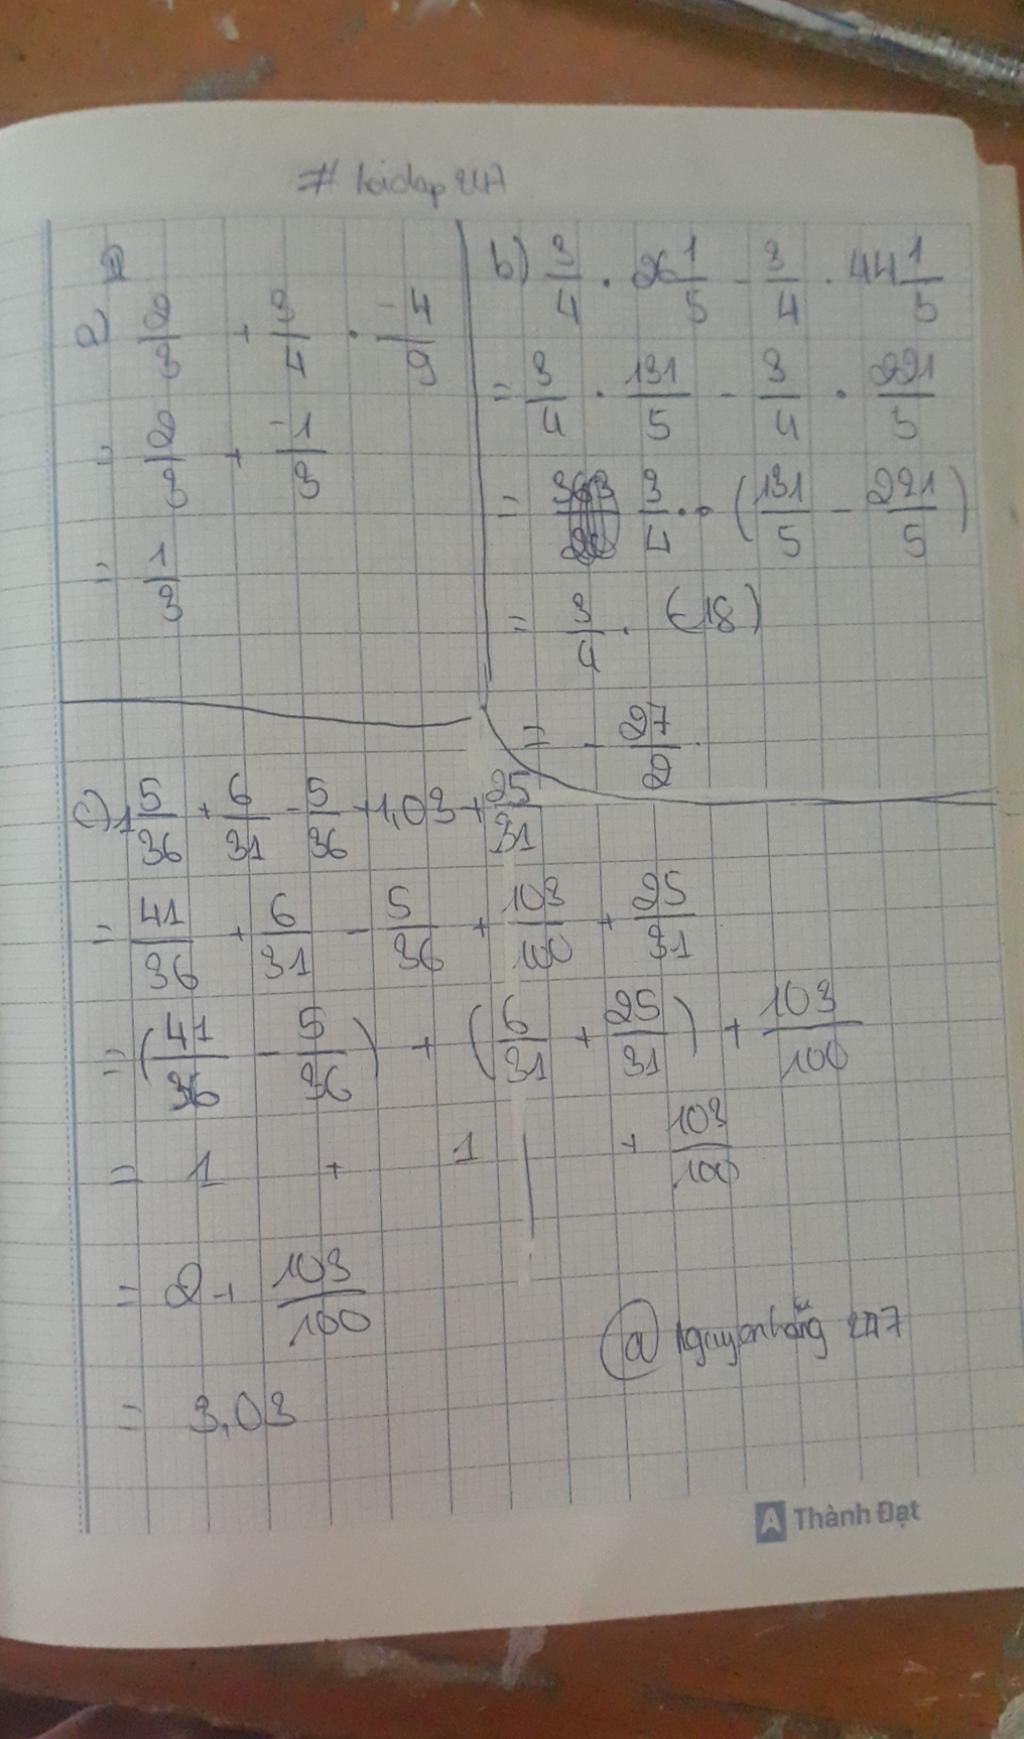 # hoidap247
a) 2/3 + 3/4 . -4/9
= 2/3 + -1/3
= 1/3
b) 3/4 . 26 1/5 - 3/4 . 44 1/5
= 3/4 . 131/5 - 3/4 . 221/5
= 3/4 . (131/5 - 221/5)
= 3/4 . (-18)
= - 27/2
c) 1 5/36 + 6/31 - 5/36 + 1,03 + 25/31
= 41/36 + 6/31 - 5/36 + 103/100 + 25/31
= (41/36 - 5/36) + (6/31 + 25/31) + 103/100
= 1 + 1 + 103/100
= 2 + 103/100
= 3,03
@ nguyenhang 247
A Thành Đạt